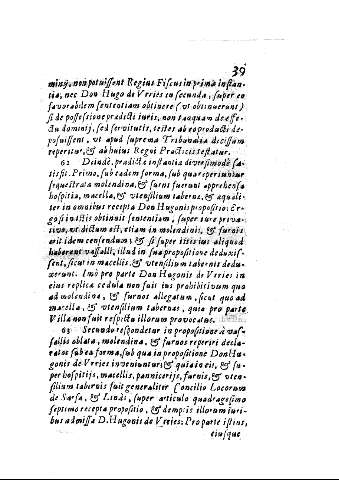 39
minij, non potuissent Regius Fiscus in prima instan-
tia, nec Don Hugo de Vrries in secunda, super eo
favorabilem sententiam obtinere (vt obtinuerunt)
si de possessione prædicti iuris, non tanquam de effe-
ctu dominij, sed servitutis, testes ab eo producti de-
posuissent, vt apud suprema Tribunalia decissum
reperitur, & ab huius Regni Practicis testatur.
62 Deindè, prædictæ instantiæ diversimodè sa-
tisfit. Primo, sub eadem forma, sub qua reperiuntur
sequestrata molendina, & furni fuerunt apprehensa
hospitia, macella, & vtensilium tabernæ, & æquali-
ter in omnibus recepta Don Hugonis propositio: Er-
go si in istis obtinuit sententiam, super iure priva-
tivo, vt dictum est, etiam in molendinis, & furnis
erit idem censendum, & si super istis ius aliquod
haberent vassalli, illud in sua propositione deduxis-
sent, sicut in macelis, & vtensilium tabernis dedu-
xerunt. Imò pro parte Don Hugonis de Vrries in
eius replica cedula non fuit ius prohibitivum quo
ad molendina, & furnos allegatum, sicut quo ad
macella, & vtensilium tabernas, quia pro parte
Villa non fuit respectu illorum provocatus.
63 Secundo respondetur in propositione à vas-
sallis oblata, molendina, & furnos reperiri decla-
ratos sub ea forma, sub qua in propositione Don Hu-
gonis de Vrries inveniuntur, & quia in eis, & su-
per hospitijs, macellis, pannicerijs, furnis, & vten-
silium tabernis fuit generaliter Concilio Locorum
de Sarsa, & Linás, super articulo quadragesimo
septimo recepta propositio, & demptis illorum iuri-
bus admissa D. Hugonis de Vrries; Pro parte istius,
eiusque